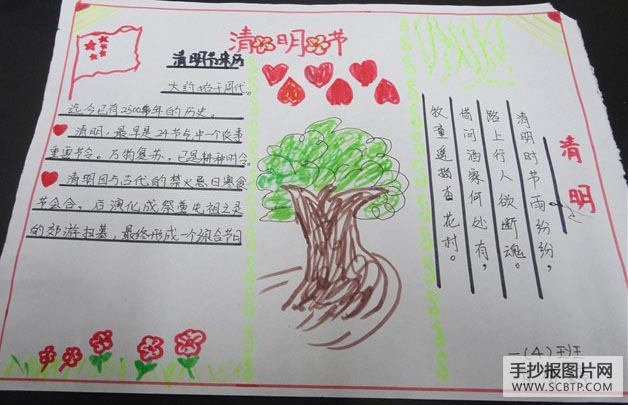 清明节
清明节来历
大约始于周代。
迄今已有2500多年的历史。
清明，最早是24节气中一个很重
要节令。万物复苏，已是耕种时令。
清明因与古代的禁火忌日寒食
节合合，后演化成祭奠先祖之灵
的郊游扫墓，最终形成一个综合节日
清明
清明时节雨纷纷，
路上行人欲断魂。
借问酒家何处有，
牧童遥指杏花村。
一(4)班
手抄报图片网
WWW.SCBTP.COM